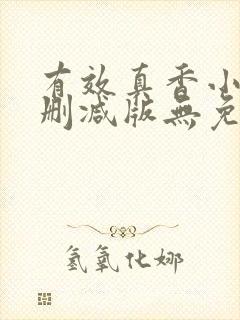 有效真香小
删减版無免
氢氧化娜